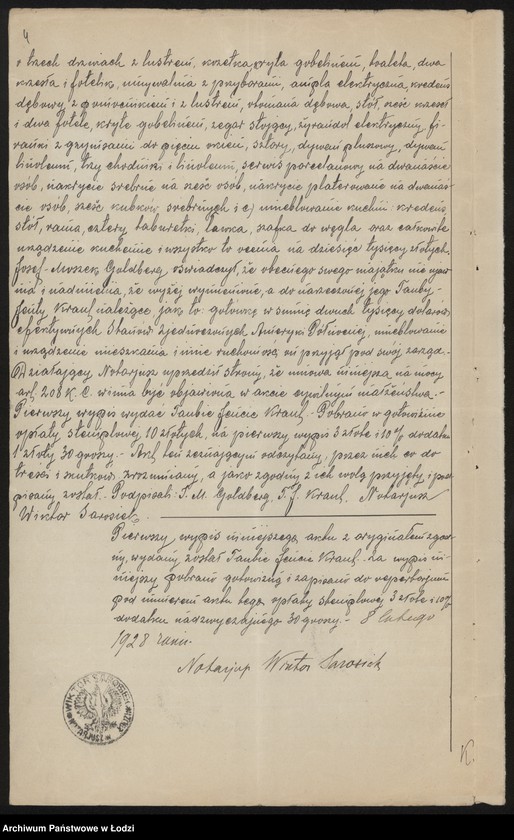 4
o trzech drzwiach z lustrem, kozetka kryta gobelinem, toaleta, dwa
krzesła i fotelik, umywalnia z przyborami, ampla elektryczna, kredens
dębowy, z pomocnikiem i z lustrem, otomana dębowa, stół, sześć krzeseł
i dwa fotele, kryte gobelinem, zegar stojący, żyrandol elektryczny, fi-
ranki z gzymsami do pięciu okien, sztory, dywan pluszowy, dywan
linoleum, trzy chodniki z linoleum, serwis porcelanowy na dwanaście
osób, nakrycie srebrne na sześć osób, nakrycie platerowane na dwanaś-
cie osób, sześć kubków srebrnych i c) umeblowanie kuchni: kredens
stół, rama, cztery taburetki, ławka, szafka do węgla oraz całkowite
urządzenie kuchenne i wszystko to ocenia na dziesięć tysięcy złotych.
Josef-Moszek Goldberg, oświadczył, że obecnego swego majątku nie ujaw
nia i nadmienia, że wyżej wymienione, a do narzeczonej jego Tauby-
Fejty Kraul należące, jak to: gotówkę w sumie dwuch tysięcy dolarów
efektywnych Stanów Zjednoczonych Ameryki Północnej, umeblowanie
i urządzenie mieszkania i inne ruchomości on przyjął pod swój zarząd.-
Działający Notarjusz uprzedził strony, że umowa niniejsza na mocy
art. 208 K.C. winna być objawiona w akcie cywilnym małżeństwa.-
Pierwszy wypis wydać Taubie Fejcie Kraul.- Pobrano w gotowiźnie
opłaty stemplowej, 10 złotych, na pierwszy wypis 3 złote i 10% dodatku
1 złoty 30 groszy.- Akt ten zeznającym odczytany, przez nich co do
treści i skutków zrozumiany, a jako zgodny z ich wolą przyjęty i pod
pisany został. Podpisali: J. M. Goldberg, T. F. Kraul, Notarjusz
Wiktor Sarosiek.
Pierwszy wypis niniejszego aktu z oryginałem zgod-
ny, wydany został Taubie Fejcie Kraul.- Za wypis ni-
niejszy pobrano gotowizną i zapisano do repertorjum
pod numerem aktu tego opłaty stemplowej 3 złote i 10%
dodatku nadzwyczajnego 30 groszy.- 8 lutego
1928 roku.
Notarjusz Wiktor Sarosiek
WIKTOR SAROSIEK
K.
Archiwum Państwowe w Łodzi